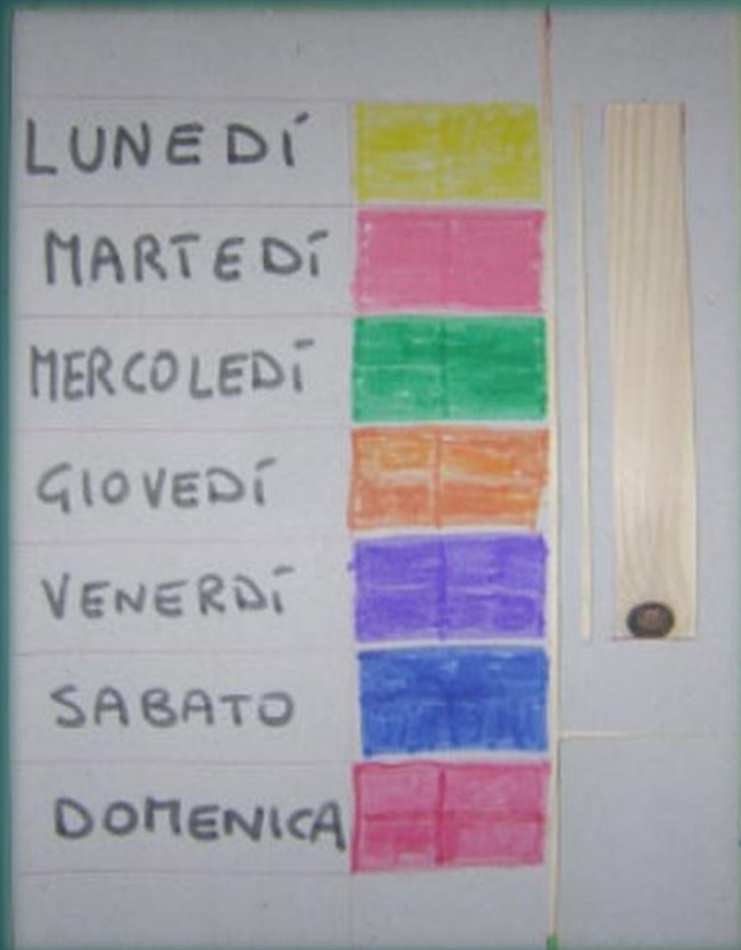 LUNEDÍ
MARTEDÍ
MERCOLEDÍ
GIOVEDÍ
VENERDÍ
SABATO
DOMENICA